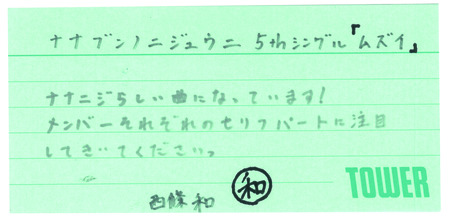 ナナブンノニジュウニ 5thシングル「ムズイ」
ナナニジらしい曲になっています!
メンバーそれぞれのセリフパートに注目
してきいてくださいっ
西條和 和
TOWER